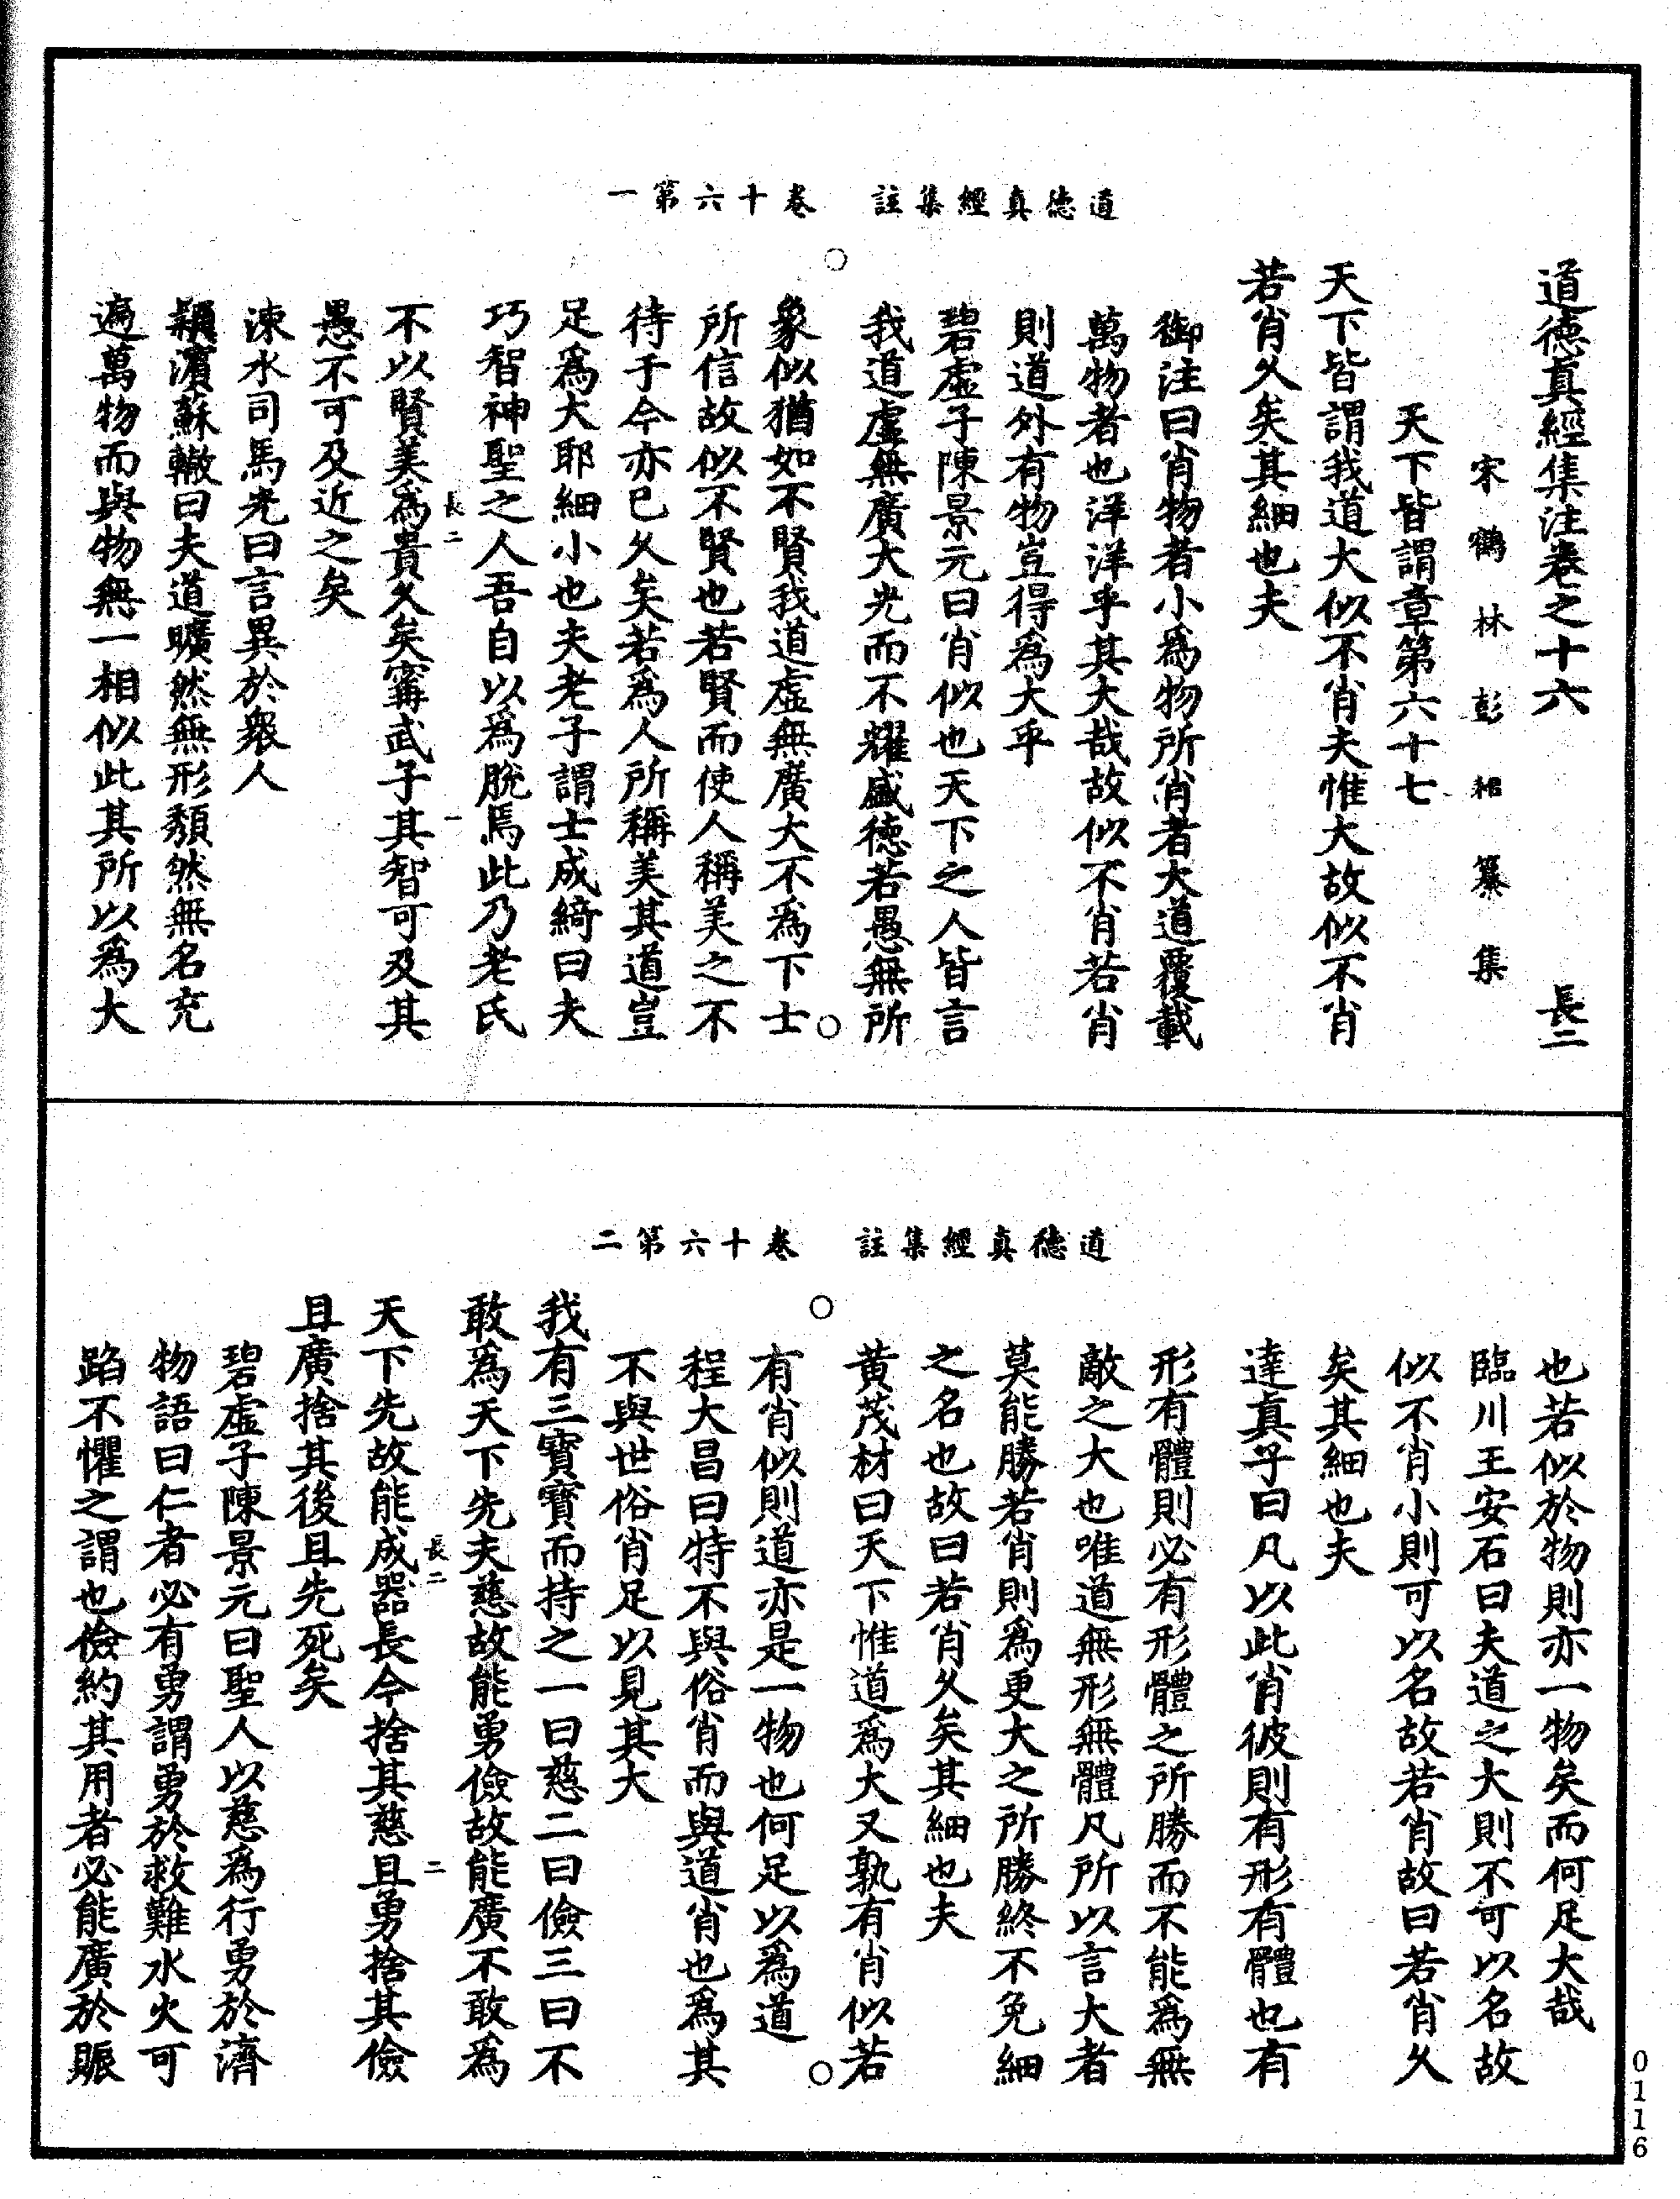 道德真經集註　卷十六第一
道德真經集注卷之十六　長二
宋鶴林彭耜纂集
天下皆謂章第六十七
天下皆謂我道大似不肖夫惟大故似不肖
若肖久矣其細也夫
御注曰肖物者小爲物所肖者大道覆載
萬物者也洋洋乎其大哉故似不肖若肖
則道外有物豈得爲大乎
碧虛子陳景元曰肖似也天下之人皆言
我道虛無廣大光而不耀盛德若愚無所
象似猶如不賢我道虛無廣大不爲下士
所信故似不賢也若賢而使人稱美之不
待于今亦已久矣若爲人所稱美其道豈
足爲大耶細小也夫老子謂士成綺曰夫
巧智神聖之人吾自以爲脫焉此乃老氏
長二　一
不以賢美爲貴久矣甯武子其智可及其
愚不可及近之矣
涑水司馬光曰言異於衆人
頴濱蘇轍曰夫道曠然無形頹然無名充
遍萬物而與物無一相似此其所以爲大
道德真經集註　卷十六第二
也若似於物則亦一物矣而何足大哉
臨川王安石曰夫道之大則不可以名故
似不肖小則可以名故若肖故曰若肖久
矣其細也夫
達真子曰凡以此肖彼則有形有體也有
形有體則必有形體之所勝而不能爲無
敵之大也唯道無形無體凡所以言大者
莫能勝若肖則爲更大之所勝終不免細
之名也故曰若肖久矣其細也夫
黃茂材曰天下惟道爲大又孰有肖似若
有肖似則道亦是一物也何足以爲道
程大昌曰特不與俗肖而與道肖也爲其
不與世俗肖足以見其大
我有三寶寶而持之一曰慈二曰儉三曰不
敢爲天下先夫慈故能勇儉故能廣不敢爲
長二　二
天下先故能成器長今捨其慈且勇捨其儉
且廣捨其後且先死矣
碧虛子陳景元曰聖人以慈爲行勇於濟
物語曰仁者必有勇謂勇於救難水火可
蹈不懼之謂也儉約其用者必能廣於賑
0116